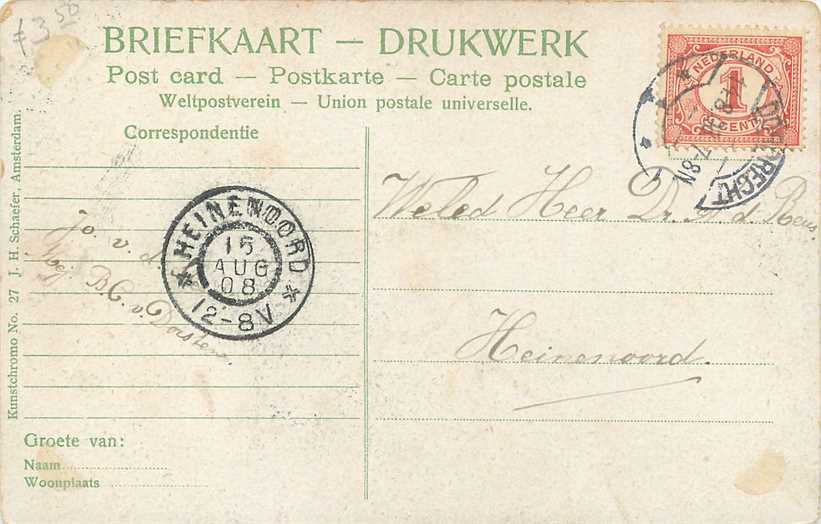 ƒ 3.50
BRIEFKAART — DRUKWERK
Post card — Postkarte — Carte postale
Weltpostverein — Union postale universelle.
Correspondentie
NEDERLAND
1
CENT
HEINENOORD
15
AUG
08
12-8V
Jo. v. d.
Mej. B.C. v. Dorsten.
Weled Heer Dr. A. d. Reus.
Heinenoord.
Groete van:
Naam
Woonplaats
Kunstchromo No. 27 J. H. Schaefer, Amsterdam.